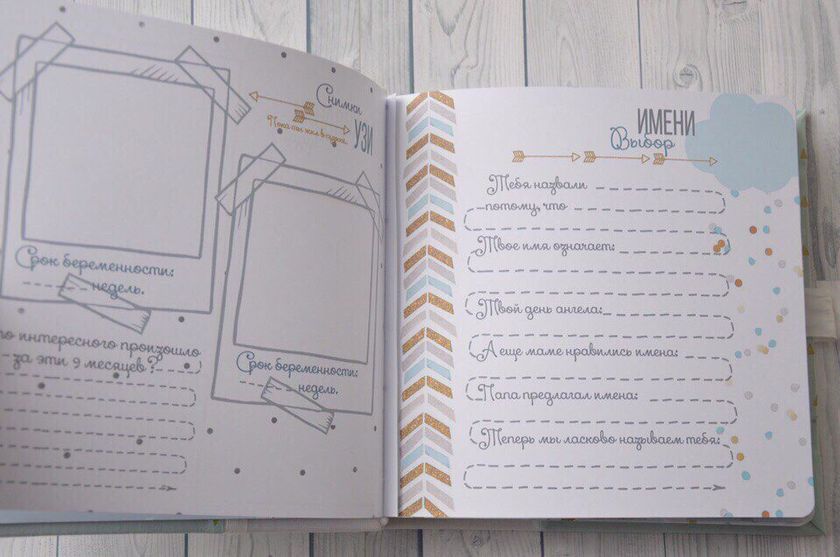 Снимки
УЗИ
Пока ты жил в
Срок беременности:
недель.
Срок беременности:
недель.
интересного произошло
за эти 9 месяцев?
ИМЕНИ
Выбор
Тебя назвали
потому, что
Твое имя означает:
Твой день ангела:
А еще маме нравились имена:
Папа предлагал имена:
Теперь мы ласково называем тебя: